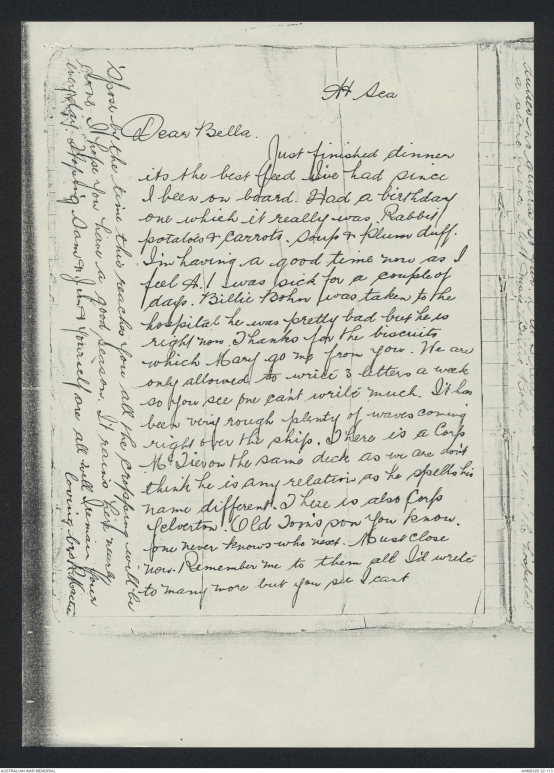 At Sea
Dear Bella.
Just finished dinner
its the best feed ive had since
I been on board. Had a birthday
one which it really was. Rabbit
potatoes & carrots. Soup & plum duff.
I'm having a good time now as I
feel A.1 I was sick for a couple of
days. Billie Bohn was taken to the
hospital he was pretty bad but he is
right now. Thanks for the biscuits
which Mary go me from you. We are
only allowed to write 3 letters a week
so you see one cant write much. It has
been very rough plenty of waves coming
right over the ship. There is a Corp
McTier on the same deck as we are dont
think he is any relation as he spells his
name different. There is also Corp
Yelverton. Old Tom's son you know.
one never knows who next. Must close
now. Remember me to them all I'd write
to many more but you see I cant
Spose by the time this reaches you all the cropping will be
done. I hope you have a good season. It rains here nearly
everyday. Hoping Sam & Jim & yourself are all well I remain your
loving bro
AUSTRALIAN WAR MEMORIAL